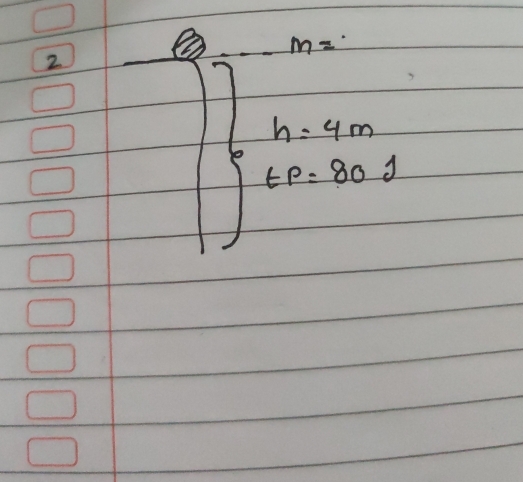 2
m =
h = 4 m
EP = 80 J